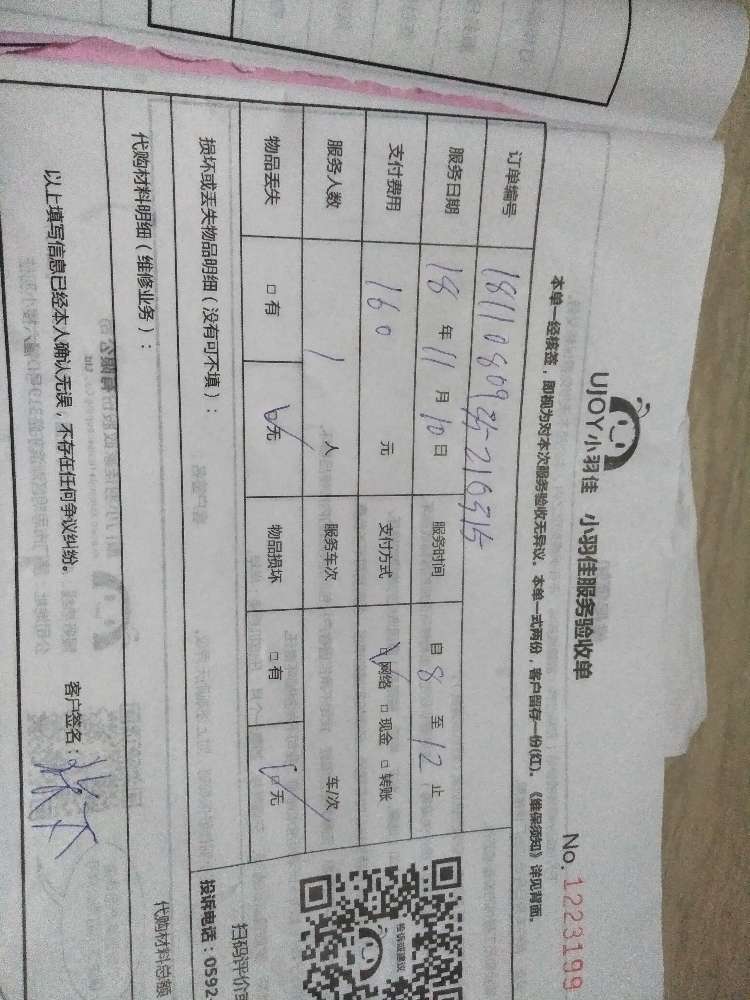 UJOY小羽佳 小羽佳服务验收单
No. 1223199
本单一经接签，即视为对本次服务验收无异议。本单一式两份，客户留存一份(红)。《维保须知》详见背面。
订单编号
服务日期 18 年 11 月 10 日 服务时间 自 8 至 12 止
支付费用 160 元 支付方式 ☑ 网络 □ 现金 □ 转账
服务人数 1 人 服务车次 车/次
物品丢失 □ 有 ☑ 无 物品损坏 □ 有 ☑ 无
损坏或丢失物品明细（没有可不填）：
代购材料明细（维修业务）：
代购材料总额
以上填写信息已经本人确认无误，不存在任何争议纠纷。 客户签名：
投诉或建议
扫码评价
投诉电话：0592